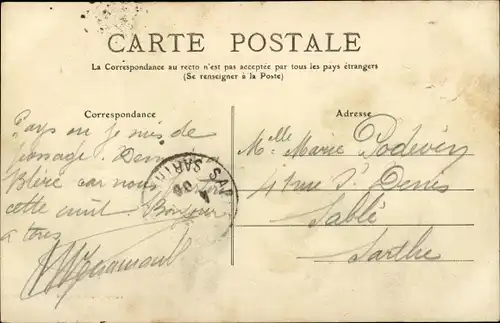 CARTE POSTALE
La Correspondance au recto n'est pas acceptée par tous les pays étrangers
(Se renseigner à la Poste)
Correspondance
Adresse
Pays ou je suis de
passage.
Bléré car nous
cette nuit. Bonjour
a tous
Melle Marie Podevin
41 rue St Denis
Sablé
Sarthe